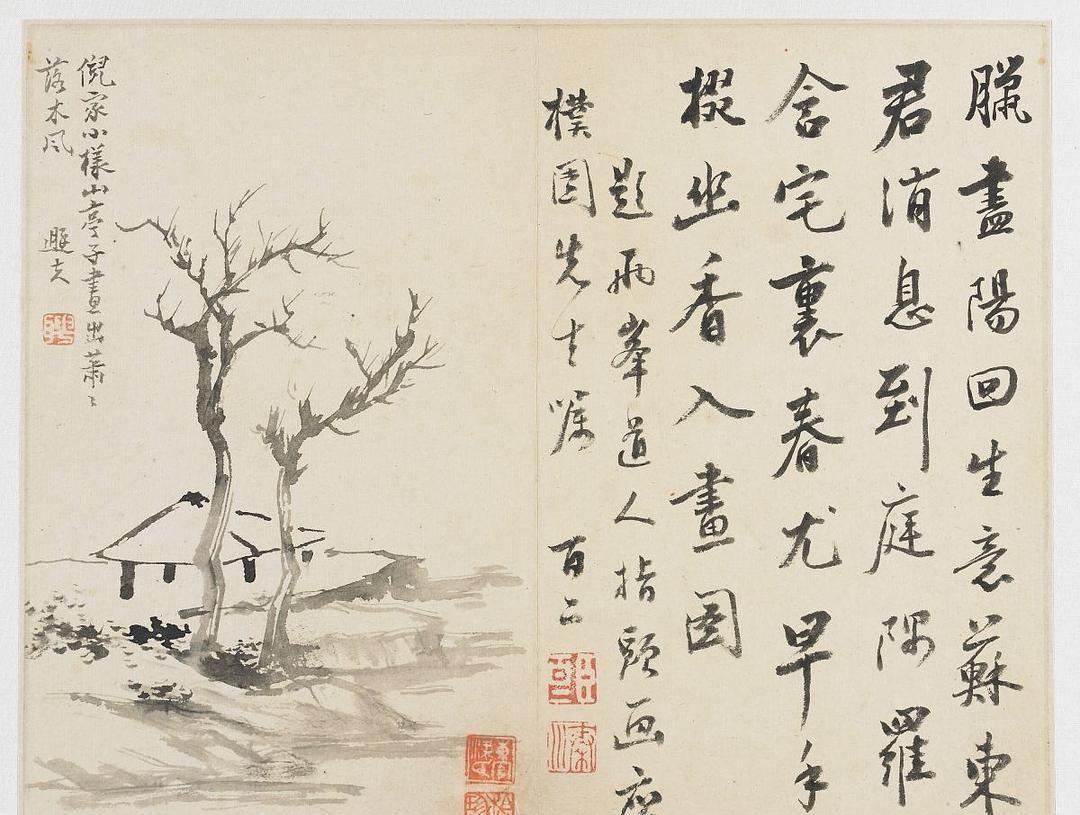 臘盡陽回生意蘇東
君消息到庭隅羅
含宅裏春尤早手
掇幽香入畫圖
題兩峯道人指頭画應
樸園先生囑 百二
倪家小樣山亭子畫出蕭〻
落木風 遯夫